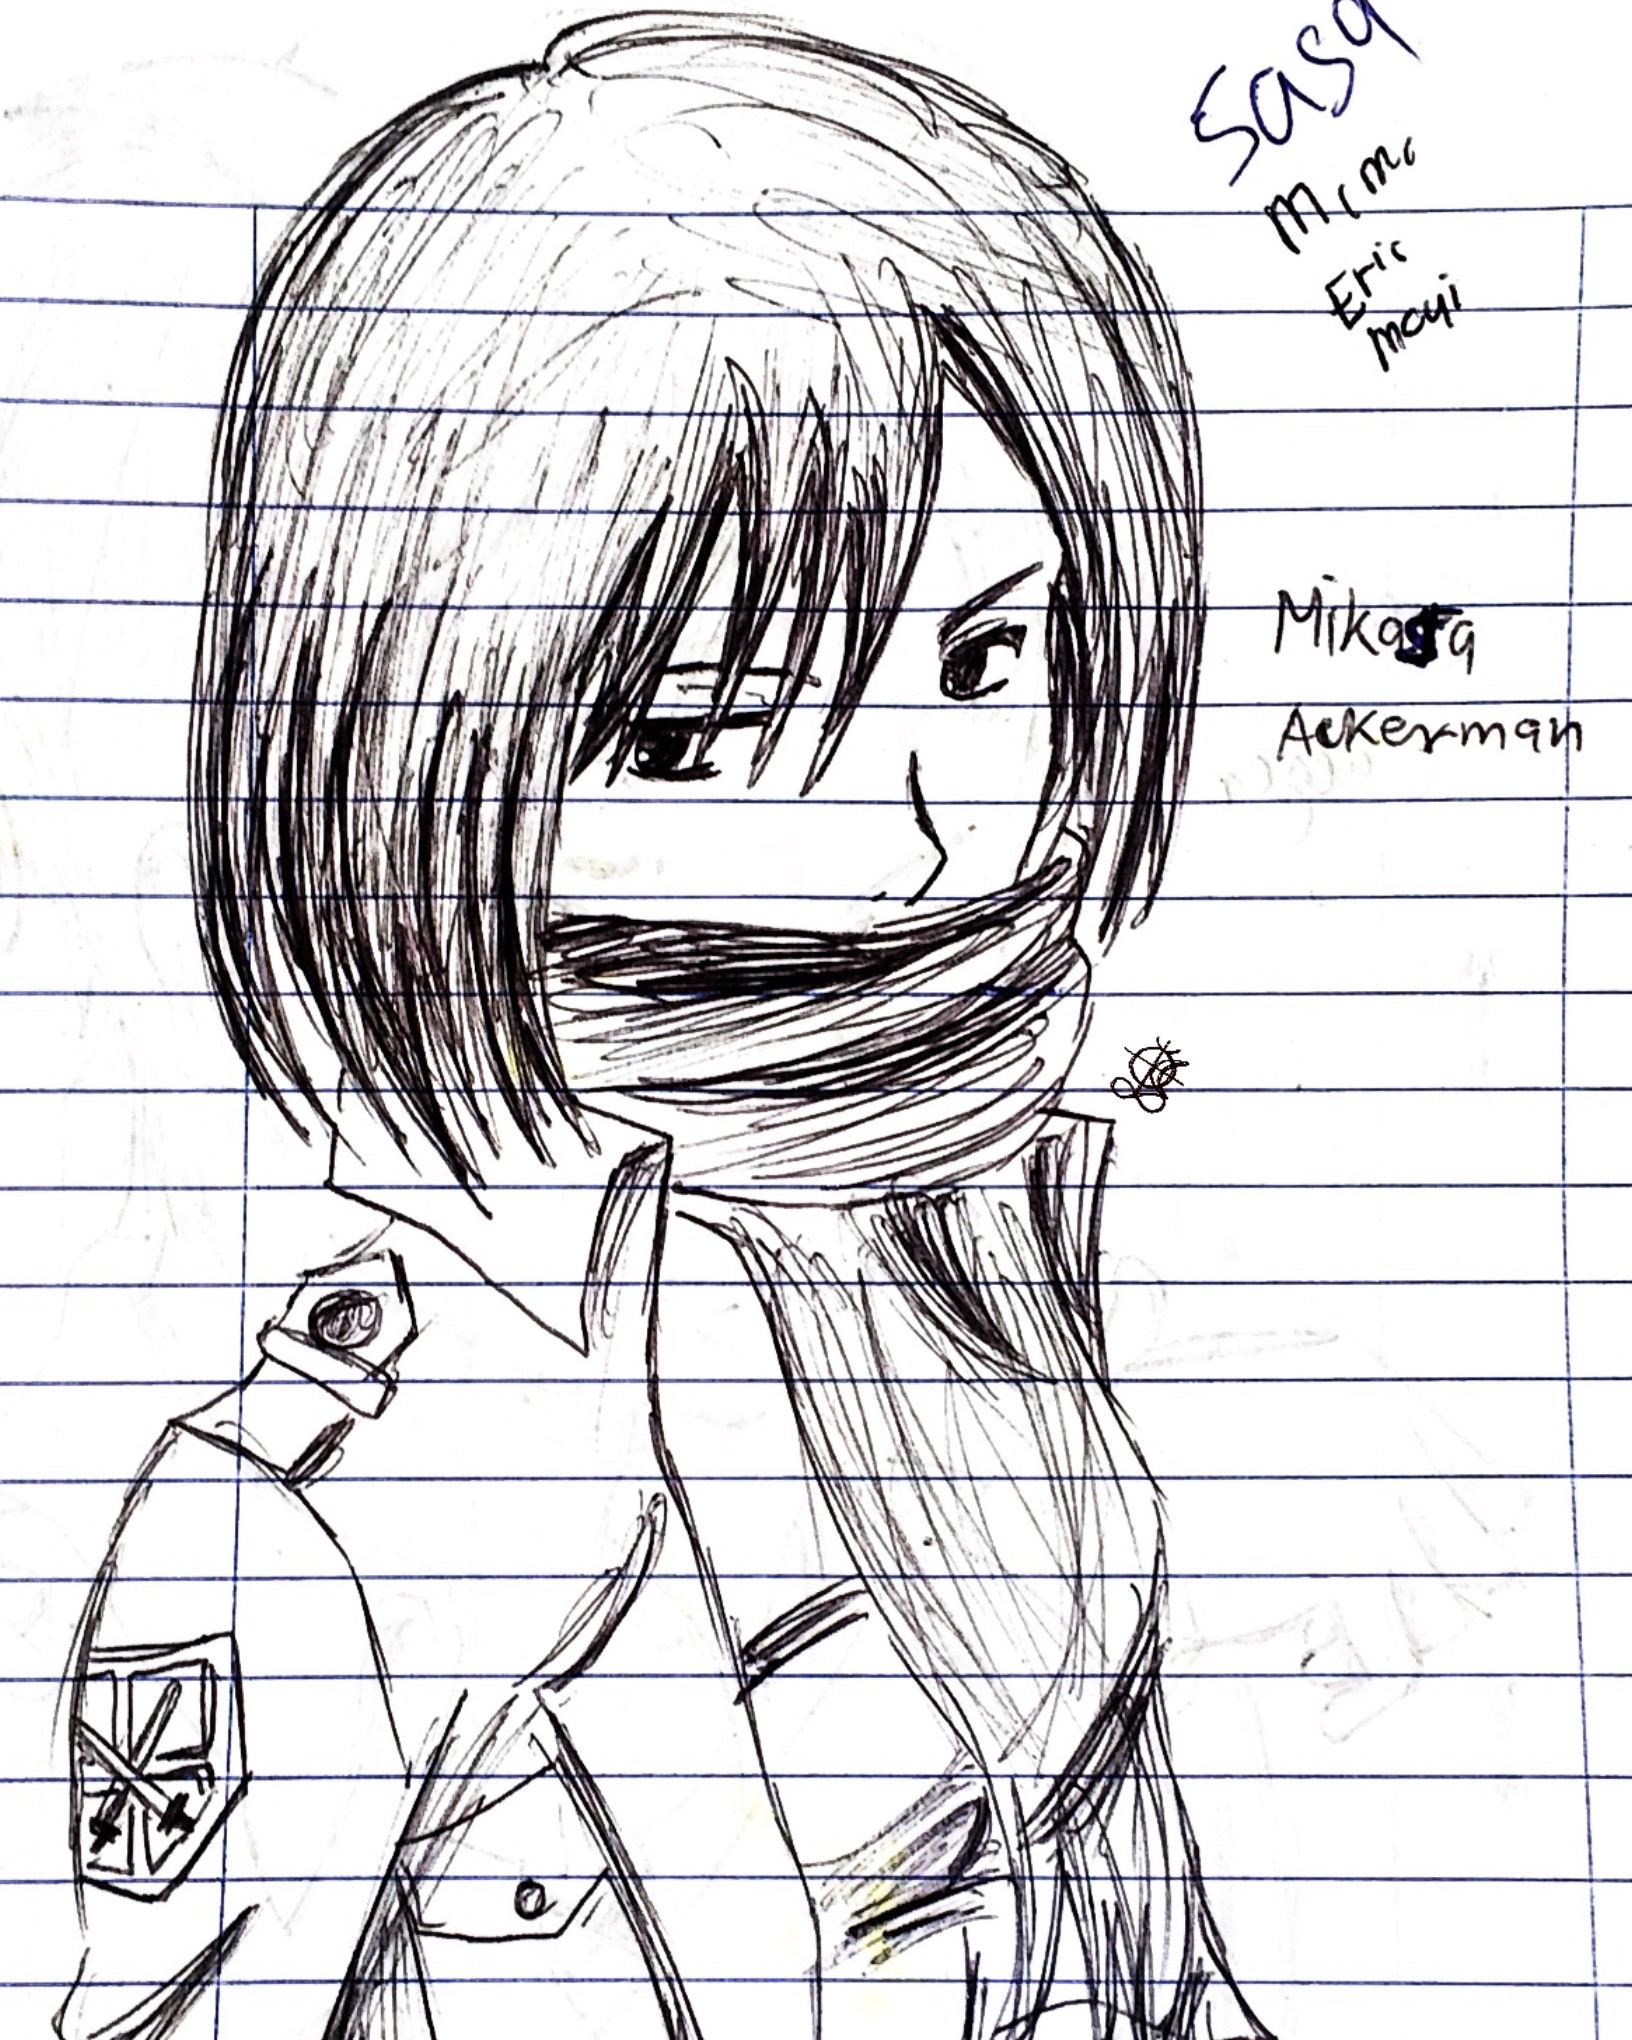 Sasa
Mimi
Eric
Mayi
Mikasa
Ackerman